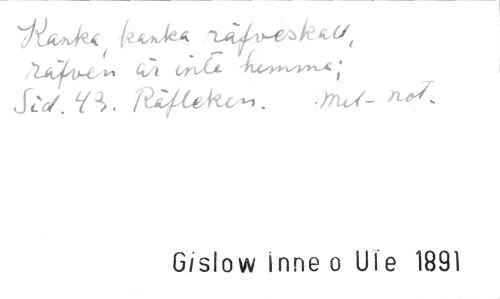 Kanka, kanka räfveskall,
räfven är inte hemma;
Sid. 43. Räfleken. mel-not.
Gislow Inne o Ute 1891